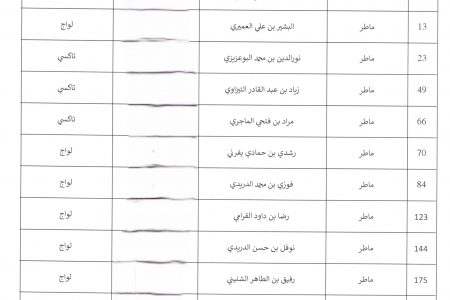 13 ماطر البشير بن علي العميري لواج
23 ماطر نورالدين بن محمد البوعزيزي تاكسي
49 ماطر زياد بن عبد القادر التيزاوي تاكسي
66 ماطر مراد بن فتحي الماجري تاكسي
70 ماطر رشدي بن حمادي يفرني لواج
84 ماطر فوزي بن محمد الدريدي لواج
123 ماطر رضا بن داود القرامي لواج
144 ماطر نوفل بن حسن الدريدي لواج
175 ماطر رفيق بن الطاهر الشنيني لواج